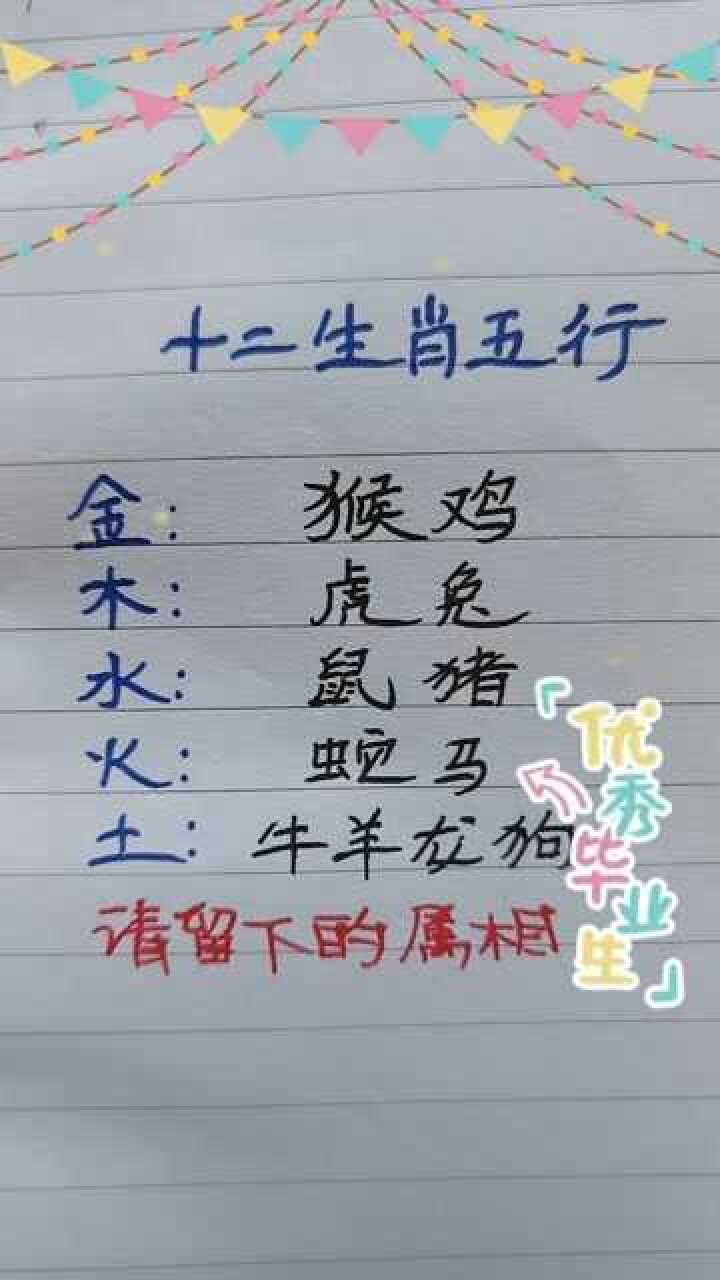 十二生肖五行
金: 猴鸡
木: 虎兔
水: 鼠猪
火: 蛇马
土: 牛羊龙狗
请留下的属相
「优秀毕业生」